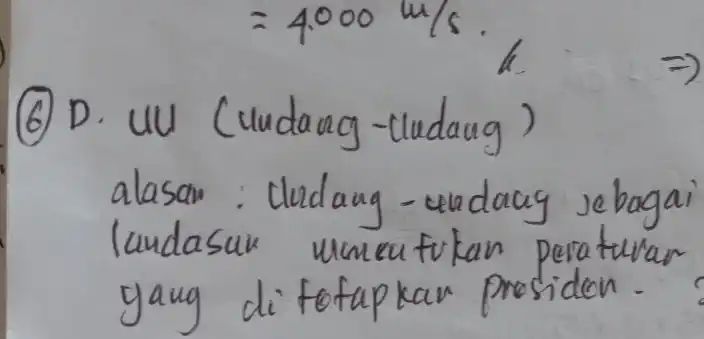 = 4.000 m/s.
⑥ D. UU (Undang-Undang)
alasan : Undang-undang sebagai
landasan menentukan peraturan
yang ditetapkan presiden.